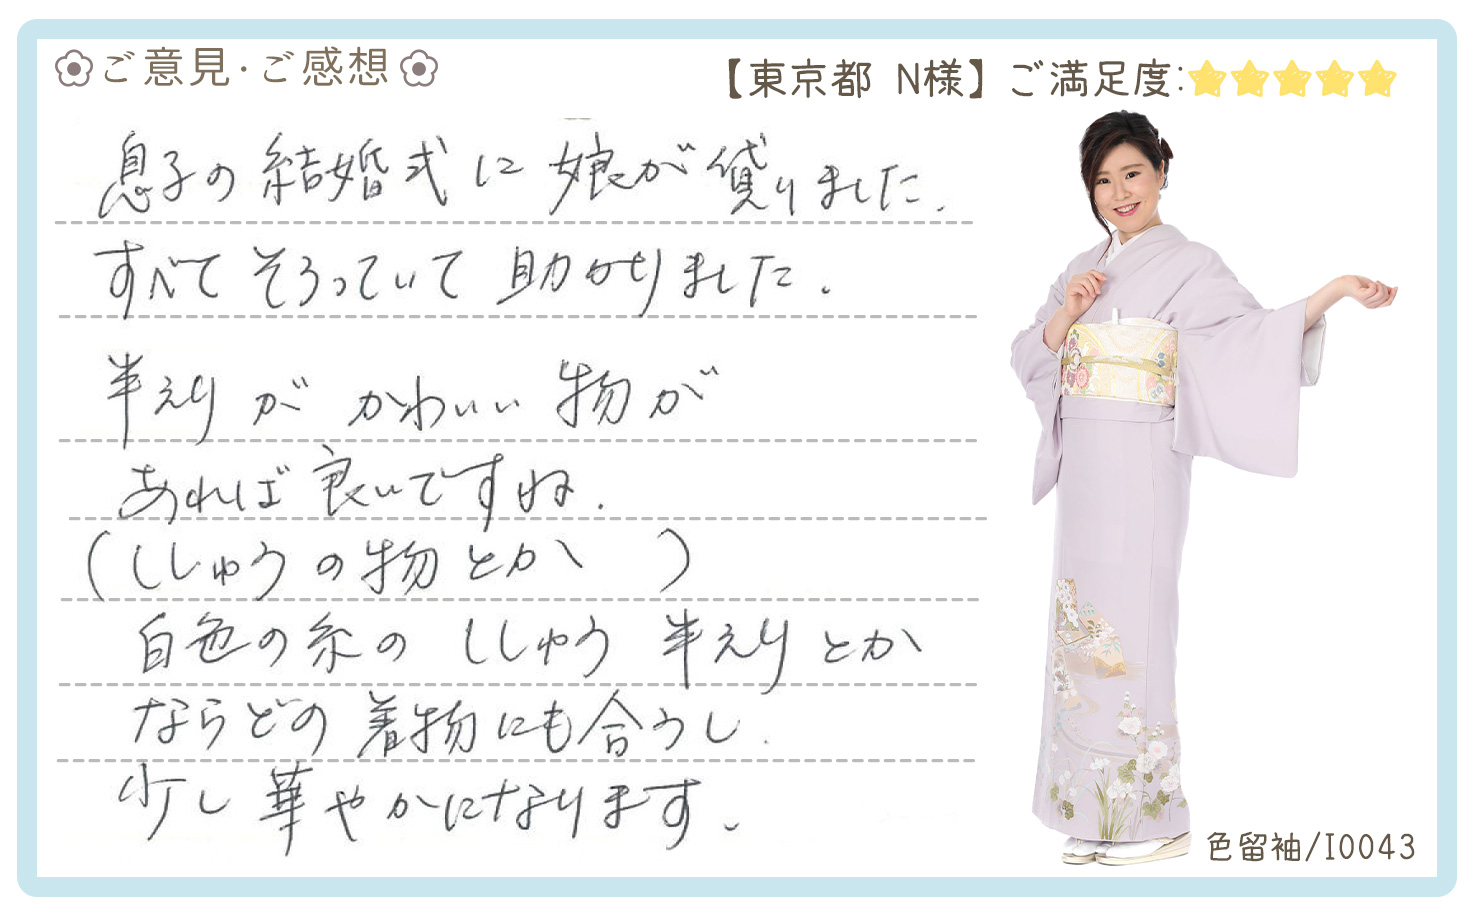 ご意見・ご感想
【東京都 N様】ご満足度:
息子の結婚式に娘が貸りました.
すべてそろっていて助かりました.
半えりがかわいい物が
あれば良いですね.
(ししゅうの物とか)
白色の糸のししゅう半えりとか
ならどの着物にも合うし.
少し華やかになります.
色留袖/I0043